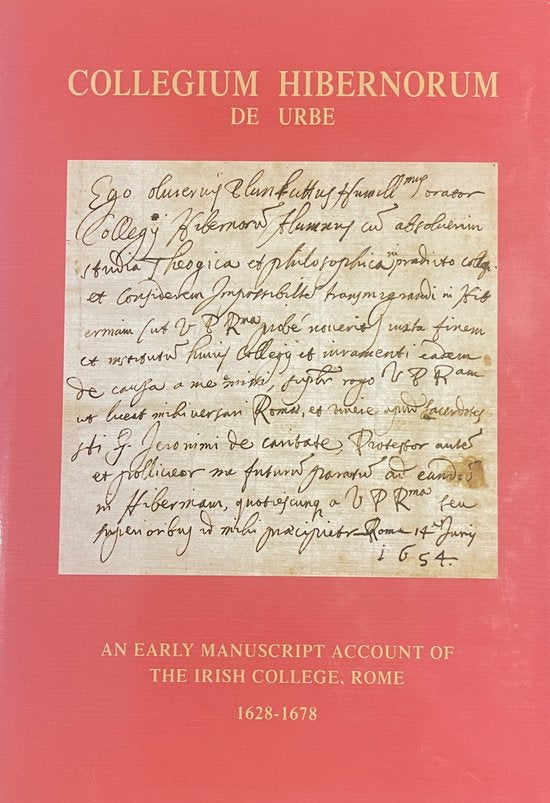 COLLEGIUM HIBERNORUM
DE URBE
Ego oliuerius Plunkettus humill^mus orator
Collegij Hibernorũ Alumnus cũ absoluerim
studia Theogica et philosophica in prædicto colleg.
et considerem Impossibilẽ transmigrandi in Hib
erniam (ut V P R^ma probé nouerit) iuxta finem
et institutũ huius Collegij et iuramenti eadem
de causa a me missi, supplr rogo V P R^am
ut liceat mihi versari Romæ, et viuere apud sacerdotes
sti G. Jeronimi de caritate, Protestor autẽ
et polliceor me futurũ paratũ ad eundũ
in Hiberniam, quotiescunq a V P R^ma seu
superioribus id mihi præcipietr Romæ 14 Junij
1654.
AN EARLY MANUSCRIPT ACCOUNT OF
THE IRISH COLLEGE, ROME
1628-1678